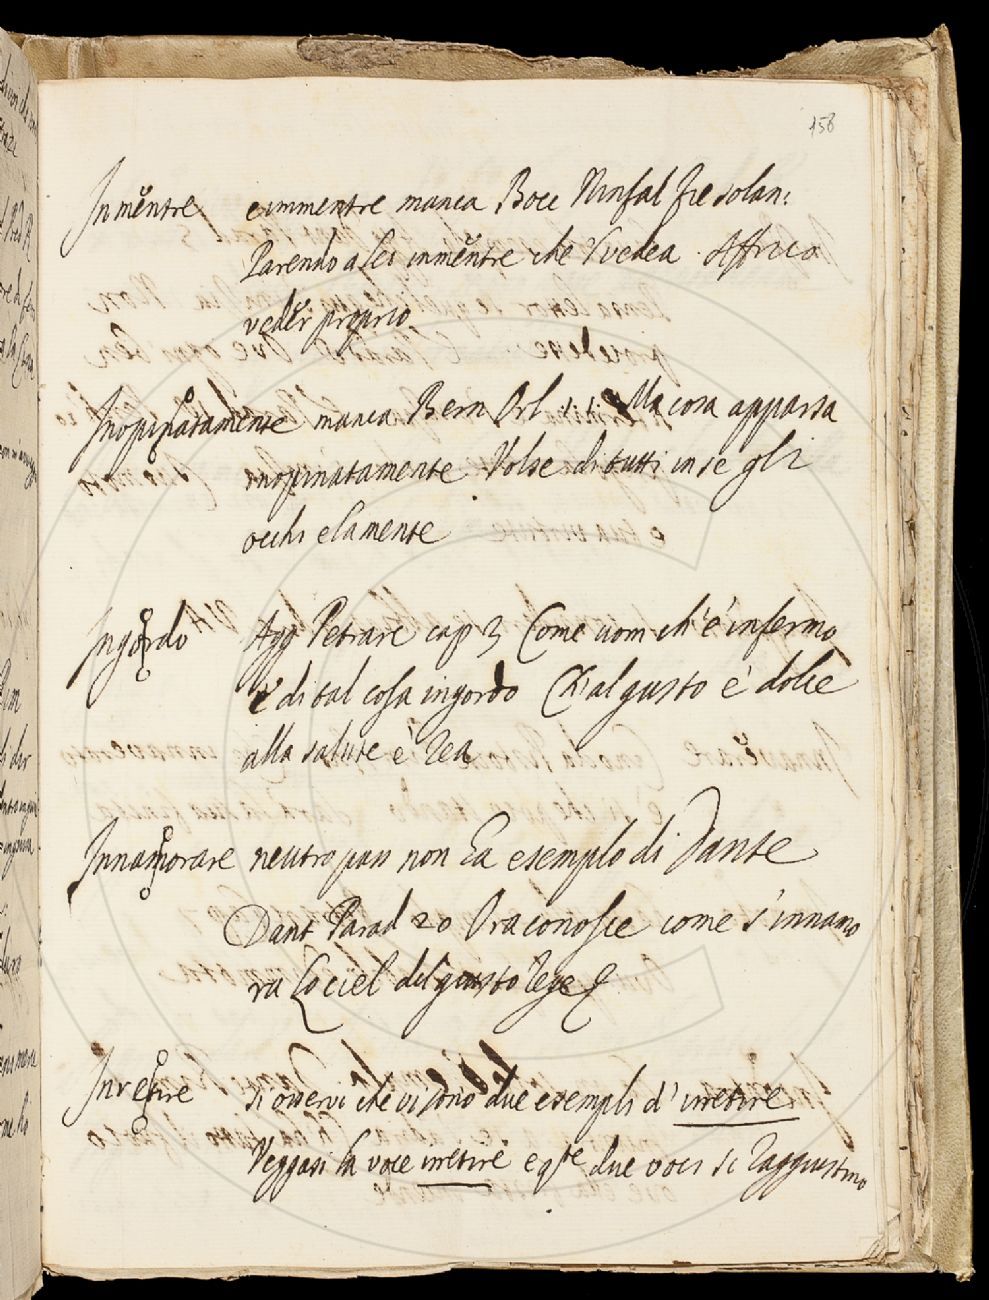 158
Inmentre e inmentre manca Bocc Ninfal Fiesolan:
Parendo a lei inmentre che vedea Affrico
veder proprio
Inopinatamente manca Bern Orl Ma cosa apparsa
inopinatamente Volse di tutti in se gli
occhi e la mente
Ingordo Agg Petrarc cap 3 Come uom ch'è infermo
e di tal cosa ingordo Ch'al gusto è dolce
alla salute è rea
Innamorare neutro pass non ha esemplo di Dante
Dant Parad 20 Ora conosce come s'innamo
ra Lo ciel del giusto rege
Inretire si osservi che vi sono due esempli d'irretire
Veggasi la voce irretire e qste due voci si raggiustino